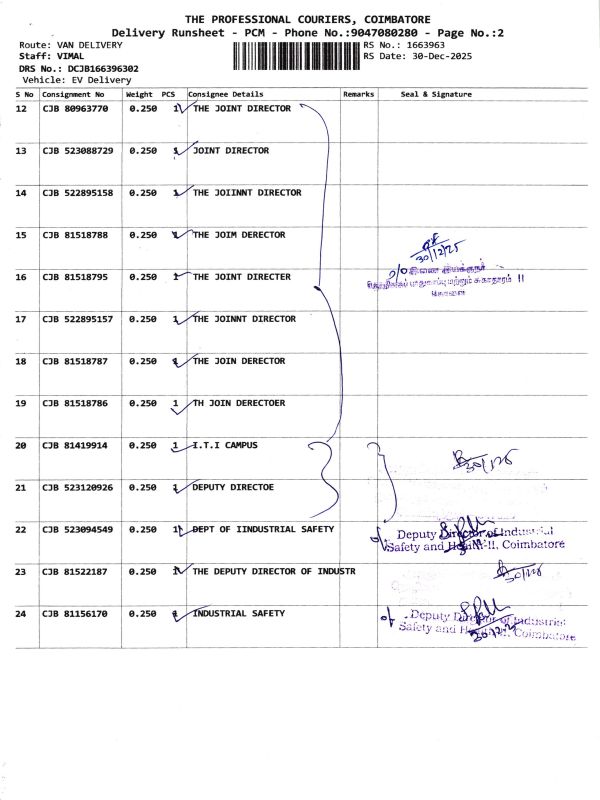 THE PROFESSIONAL COURIERS, COIMBATORE
Delivery Runsheet - PCM - Phone No.:9047080280 - Page No.:2
Route: VAN DELIVERY
RS No.: 1663963
Staff: VIMAL
RS Date: 30-Dec-2025
DRS No.: DCJB166396302
Vehicle: EV Delivery
S No Consignment No Weight PCS Consignee Details Remarks Seal & Signature
12 CJB 80963770 0.250 1 THE JOINT DIRECTOR
13 CJB 523088729 0.250 1 JOINT DIRECTOR
14 CJB 522895158 0.250 1 THE JOIINNT DIRECTOR
15 CJB 81518788 0.250 1 THE JOIM DERECTOR
30/12/25
16 CJB 81518795 0.250 1 THE JOINT DIRECTER
o/o இணை இயக்குநர்
பாதுகாப்பு மற்றும் சுகாதாரம் II
கோவை
17 CJB 522895157 0.250 1 THE JOINNT DIRECTOR
18 CJB 81518787 0.250 1 THE JOIN DERECTOR
19 CJB 81518786 0.250 1 TH JOIN DERECTOER
20 CJB 81419914 0.250 1 I.T.I CAMPUS
21 CJB 523120926 0.250 1 DEPUTY DIRECTOE
22 CJB 523094549 0.250 1 DEPT OF IINDUSTRIAL SAFETY
Deputy Director of Industrial
Safety and Health-II, Coimbatore
23 CJB 81522187 0.250 1 THE DEPUTY DIRECTOR OF INDUSTR
24 CJB 81156170 0.250 1 INDUSTRIAL SAFETY
Deputy Director of Industrial
Safety and Health-II, Coimbatore